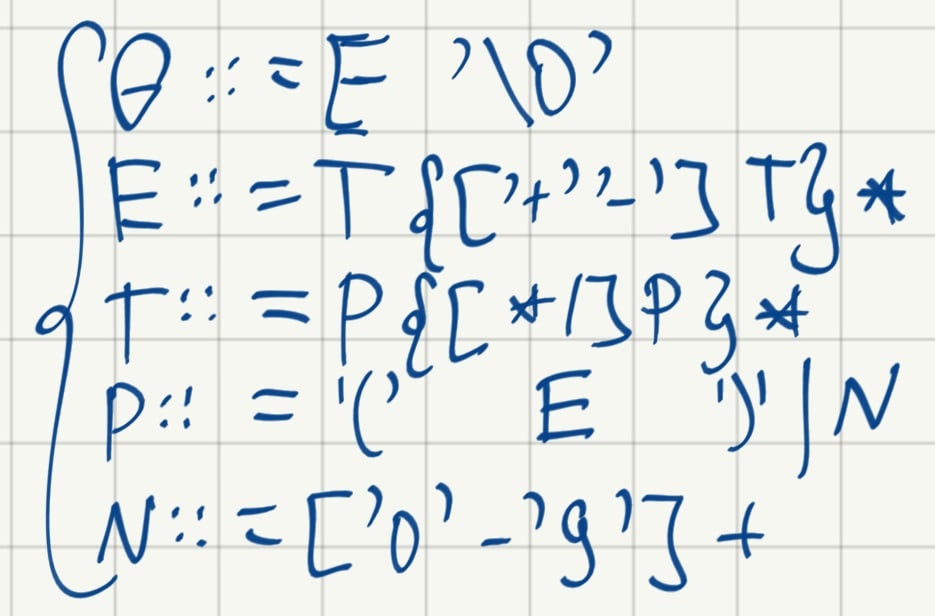 G ::= E '\0'
E ::= T{['+' '-'] T}*
T ::= P{[*/]P}*
P ::= '(' E ')' | N
N ::= ['0'-'9']+